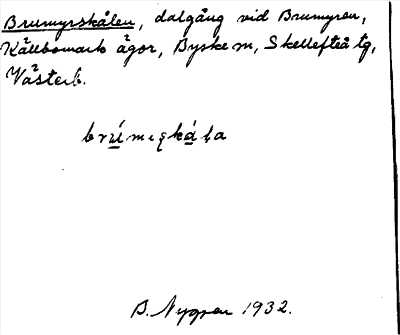 Brumyrskålen, dalgång vid Brumyren,
Källbomark ägor, Byske m, Skellefteå tg,
Västerb.
brúmıʂkáḷa
B. Nygren 1932.